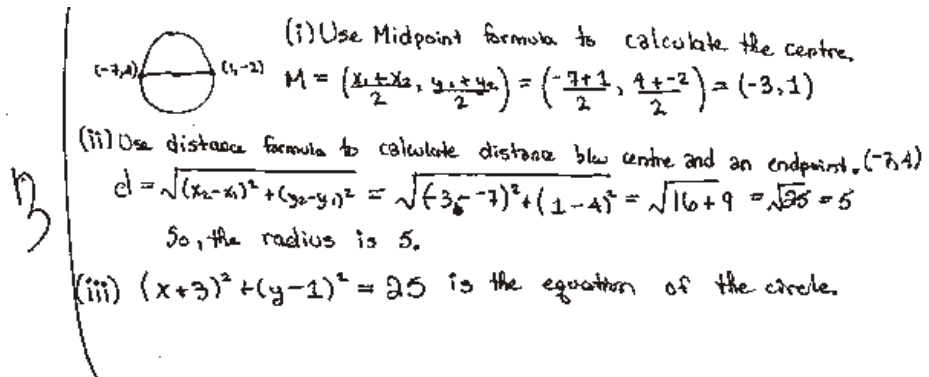 (i) Use Midpoint formula to calculate the centre.
(-7,4) (1,-2) M = (x₁+x₂/2, y₁+y₂/2) = (-7+1/2, 4+-2/2) = (-3,1)
(ii) Use distance formula to calculate distance b/w centre and an endpoint. (-7,4)
d = √(x₂-x₁)² + (y₂-y₁)² = √(-3--7)² + (1-4)² = √16+9 = √25 = 5
So, the radius is 5.
(iii) (x+3)² + (y-1)² = 25 is the equation of the circle.